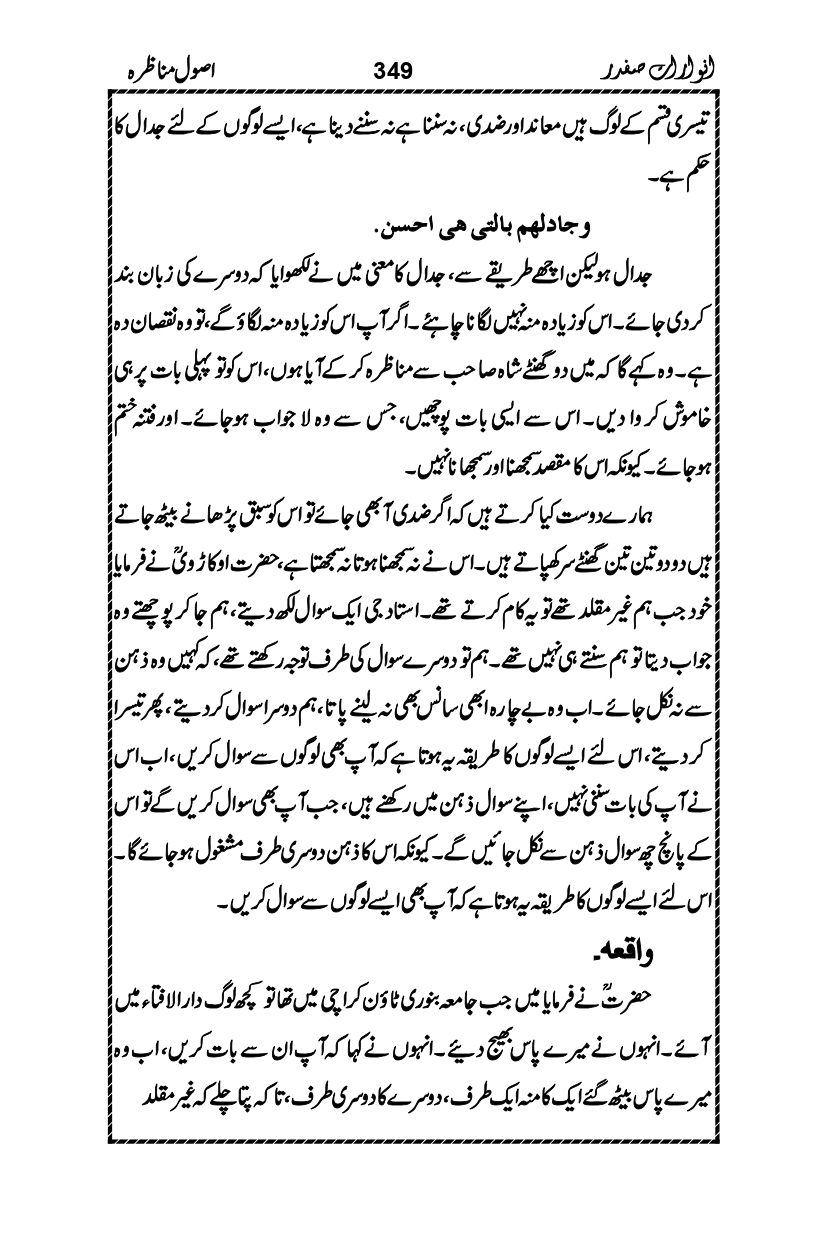 انوارات صفدر 349 اصول مناظرہ
تیسری قسم کے لوگ ہیں معاند اور ضدی، نہ سننا ہے نہ سننے دینا ہے، ایسے لوگوں کے لئے جدال کا
حکم ہے۔
وجادلھم بالتی ھی احسن.
جدال ہو لیکن اچھے طریقے سے، جدال کا معنی میں نے لکھوایا کہ دوسرے کی زبان بند
کر دی جائے۔ اس کو زیادہ منہ نہیں لگانا چاہئے۔ اگر آپ اس کو زیادہ منہ لگاؤ گے، تو وہ نقصان دہ
ہے۔ وہ کہے گا کہ میں دو گھنٹے شاہ صاحب سے مناظرہ کر کے آیا ہوں، اس کو تو پہلی بات پر ہی
خاموش کروا دیں۔ اس سے ایسی بات پوچھیں، جس سے وہ لا جواب ہو جائے۔ اور فتنہ ختم
ہو جائے۔ کیونکہ اس کا مقصد سمجھنا اور سمجھانا نہیں۔
ہمارے دوست کیا کرتے ہیں کہ اگر ضدی آبھی جائے تو اس کو سبق پڑھانے بیٹھ جاتے
ہیں دو دو تین تین گھنٹے سر کھپاتے ہیں۔ اس نے نہ سمجھنا ہوتا نہ سمجھتا ہے، حضرت اوکاڑویؒ نے فرمایا
خود جب ہم غیر مقلد تھے تو یہ کام کرتے تھے۔ استاد جی ایک سوال لکھ دیتے، ہم جا کر پوچھتے وہ
جواب دیتا تو ہم سنتے ہی نہیں تھے۔ ہم تو دوسرے سوال کی طرف توجہ رکھتے تھے، کہ کہیں وہ ذہن
سے نہ نکل جائے۔ اب وہ بے چارہ ابھی سانس بھی نہ لینے پاتا، ہم دوسرا سوال کر دیتے، پھر تیسرا
کر دیتے، اس لئے ایسے لوگوں کا طریقہ یہ ہوتا ہے کہ آپ بھی لوگوں سے سوال کریں، اب اس
نے آپ کی بات سننی نہیں، اپنے سوال ذہن میں رکھنے ہیں، جب آپ بھی سوال کریں گے تو اس
کے پانچ چھ سوال ذہن سے نکل جائیں گے۔ کیونکہ اس کا ذہن دوسری طرف مشغول ہو جائے گا۔
اس لئے ایسے لوگوں کا طریقہ یہ ہوتا ہے کہ آپ بھی ایسے لوگوں سے سوال کریں۔
واقعہ۔
حضرتؒ نے فرمایا میں جب جامعہ بنوری ٹاؤن کراچی میں تھا تو کچھ لوگ دارالافتاء میں
آئے۔ انہوں نے میرے پاس بھیج دیئے۔ انہوں نے کہا کہ آپ ان سے بات کریں، اب وہ
میرے پاس بیٹھ گئے ایک کا منہ ایک طرف، دوسرے کا دوسری طرف، تا کہ پتا چلے کہ غیر مقلد